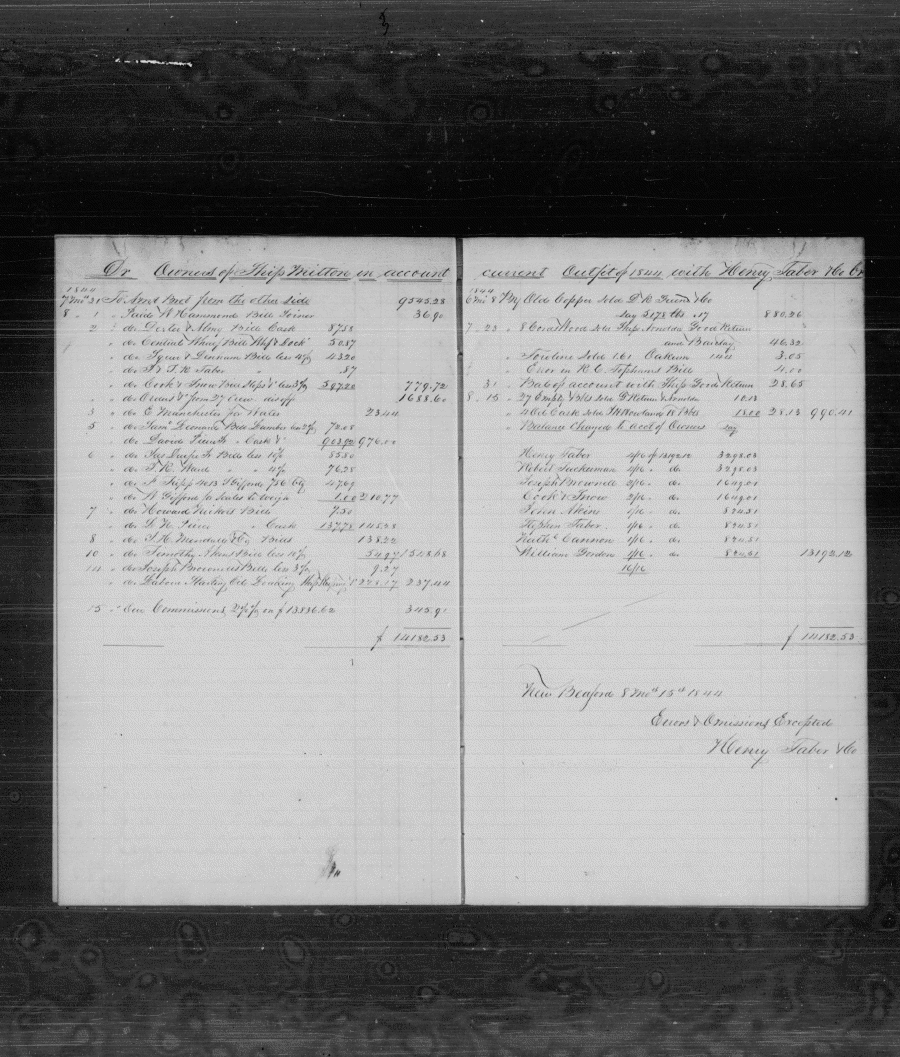 Dr Owners of Ship Milton in account
1844
7 mo 31 To Amot Brot from the other side 9545.28
8 " 1 " Paid W Hammond Bill Joiner 36.90
2 " do Dexter & Almy Bill Cask 87.58
" do Central Wharf Bill Whf & Dock 50.87
" do Tyur & Denham Bills less 4% 43.20
" do I & T. R. Taber " .87
" do Cook & Snow Bill Slops &c less 3% 597.20 779.72
" do Owens &c from 27 crew disoff 1688.60
3 " do E Manchester for Wales 23.44
5 " do Saml Leonard Bill Lumber 72.08
" do David Peirce " Cask &c 903.92 976.00
6 " do Bills less 10% 85.80
" do T. R. Ware " " 4% 76.28
" do A Tripp 47.69
" do A Gifford for Scales to weigh 1.00 210.77
7 " do Howard Nickols Bills 7.50
" do D. K. Peirce " Cask 137.78 145.28
8 " do T. H. Mendall & Co Bills 138.22
10 " do Timothy Akin Bill less 10% 54.97 1518.68
14 " do Joseph Brownell Bills less 3% 9.27
" do Labour Starting Oil Ship Keeping 228.17 237.44
15 " Our Commissions 2½% on $13836.62 345.91
$ 14182.53
current Outfit of 1844 with Henry Taber & Co Cr
1844
6 mo 8 By Old Copper sold D R Green & Co
say 5178 lbs .17 880.26
7 " 23 " 8 Cords Wood sold Ship Good Return
and Barclay 46.32
" Towline sold 161 Oakum 144 3.05
" Error in R. C. Tophams Bill 4.00
" 31 " Bal of account with Ship Good Return 28.65
8 " 15 " 27 Empty Bbls sold G Return & 10.13
" 4 Oil Cask sold I Howland 18 Bbls 18.00 28.13 990.41
" Balance Charged to acct of Owners say
Henry Taber 4/16 of 13192.12 3298.03
Robert Tuckerman 4/16 " do. 3298.03
Joseph Brownell 2/16 " do. 1649.01
Cook & Snow 2/16 " do. 1649.01
John Akin 1/16 " do. 824.51
Stephen Taber 1/16 " do. 824.51
Nathl Cannon 1/16 " do. 824.51
William Gordon 1/16 " do. 824.51 13192.12
16/16
$ 14182.53
New Bedford 8 Mo 15th 1844
Errors & Omissions Excepted
Henry Taber & Co